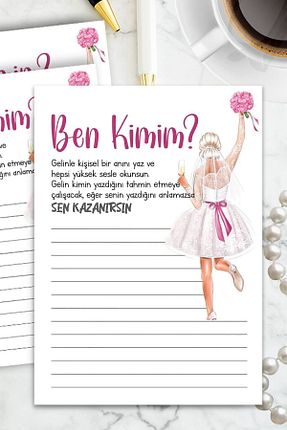 Ben Kimim?
Gelinle kişisel bir anını yaz ve
hepsi yüksek sesle okunsun.
Gelin kimin yazdığını tahmin etmeye
çalışacak, eğer senin yazdığını anlamazsa
SEN KAZANIRSIN
im?